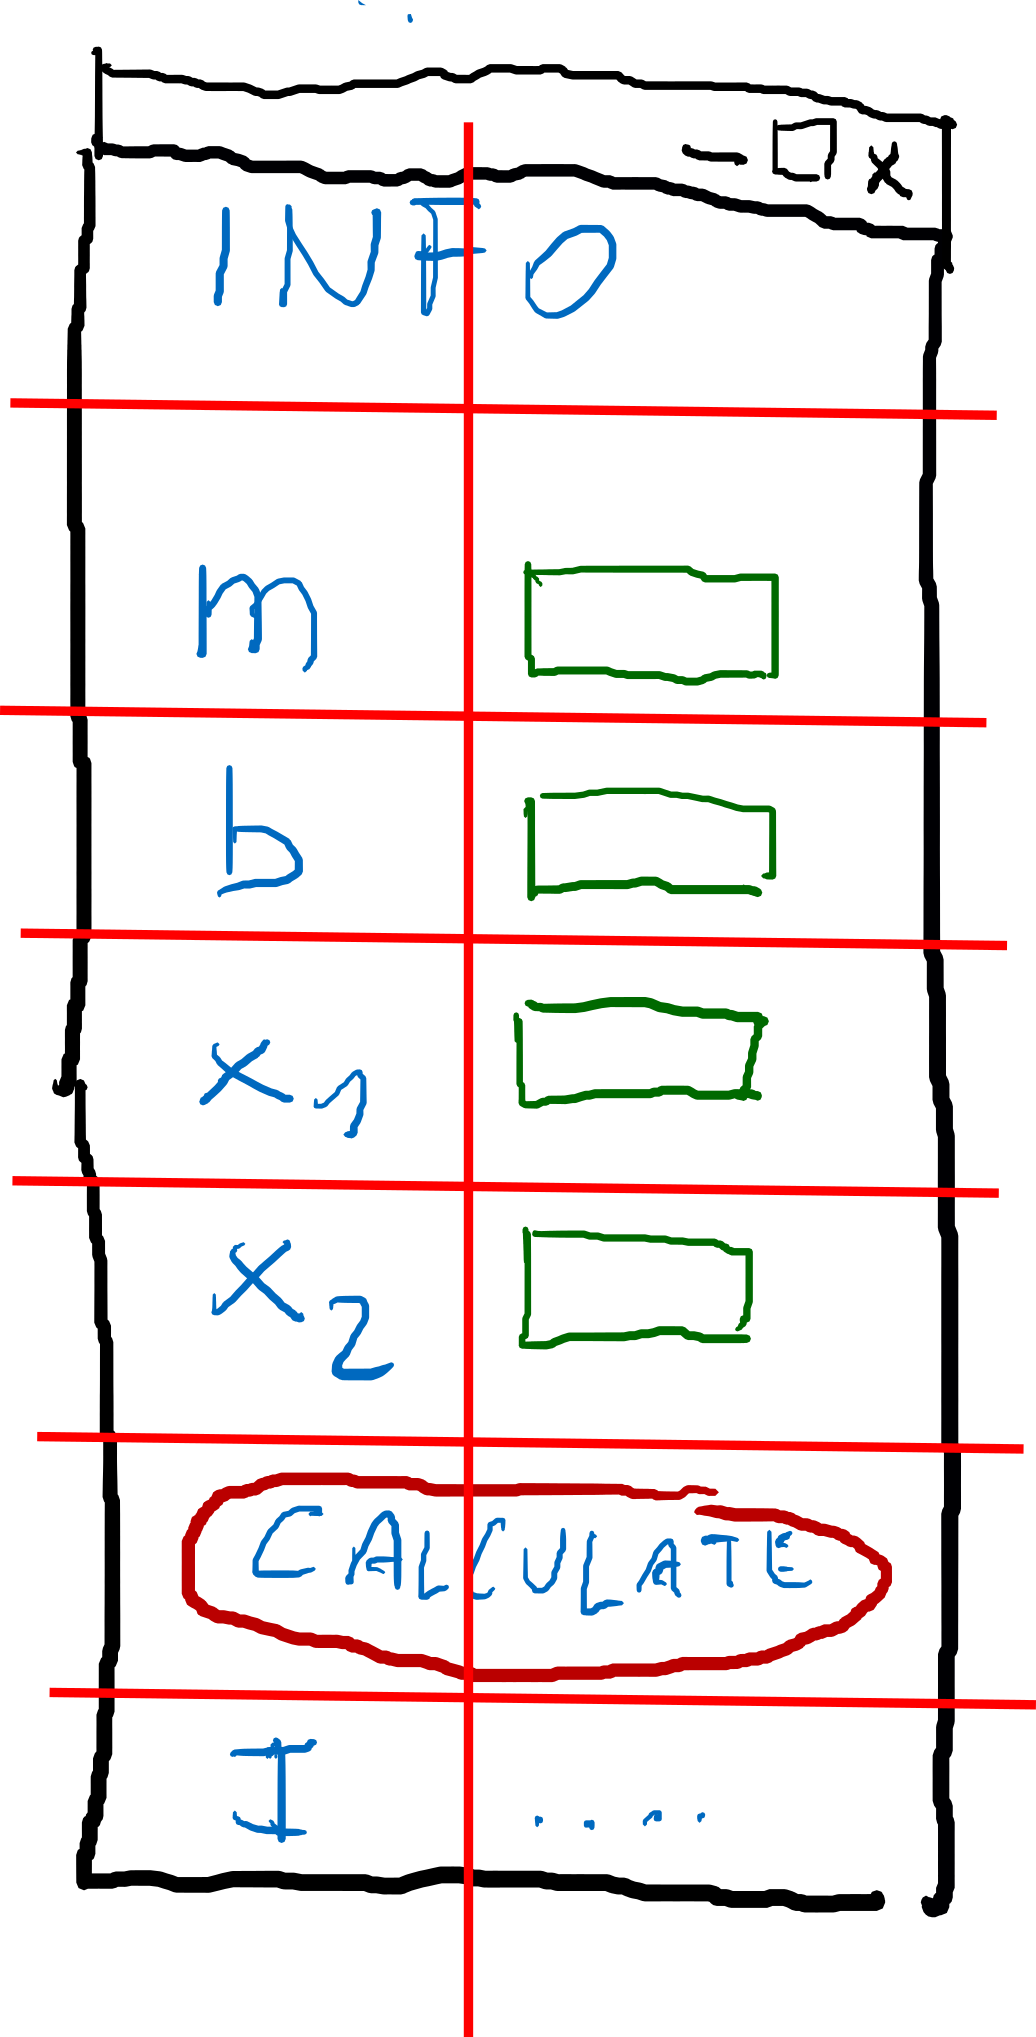 INFO
m
b
x1
x2
CALCULATE
I ....